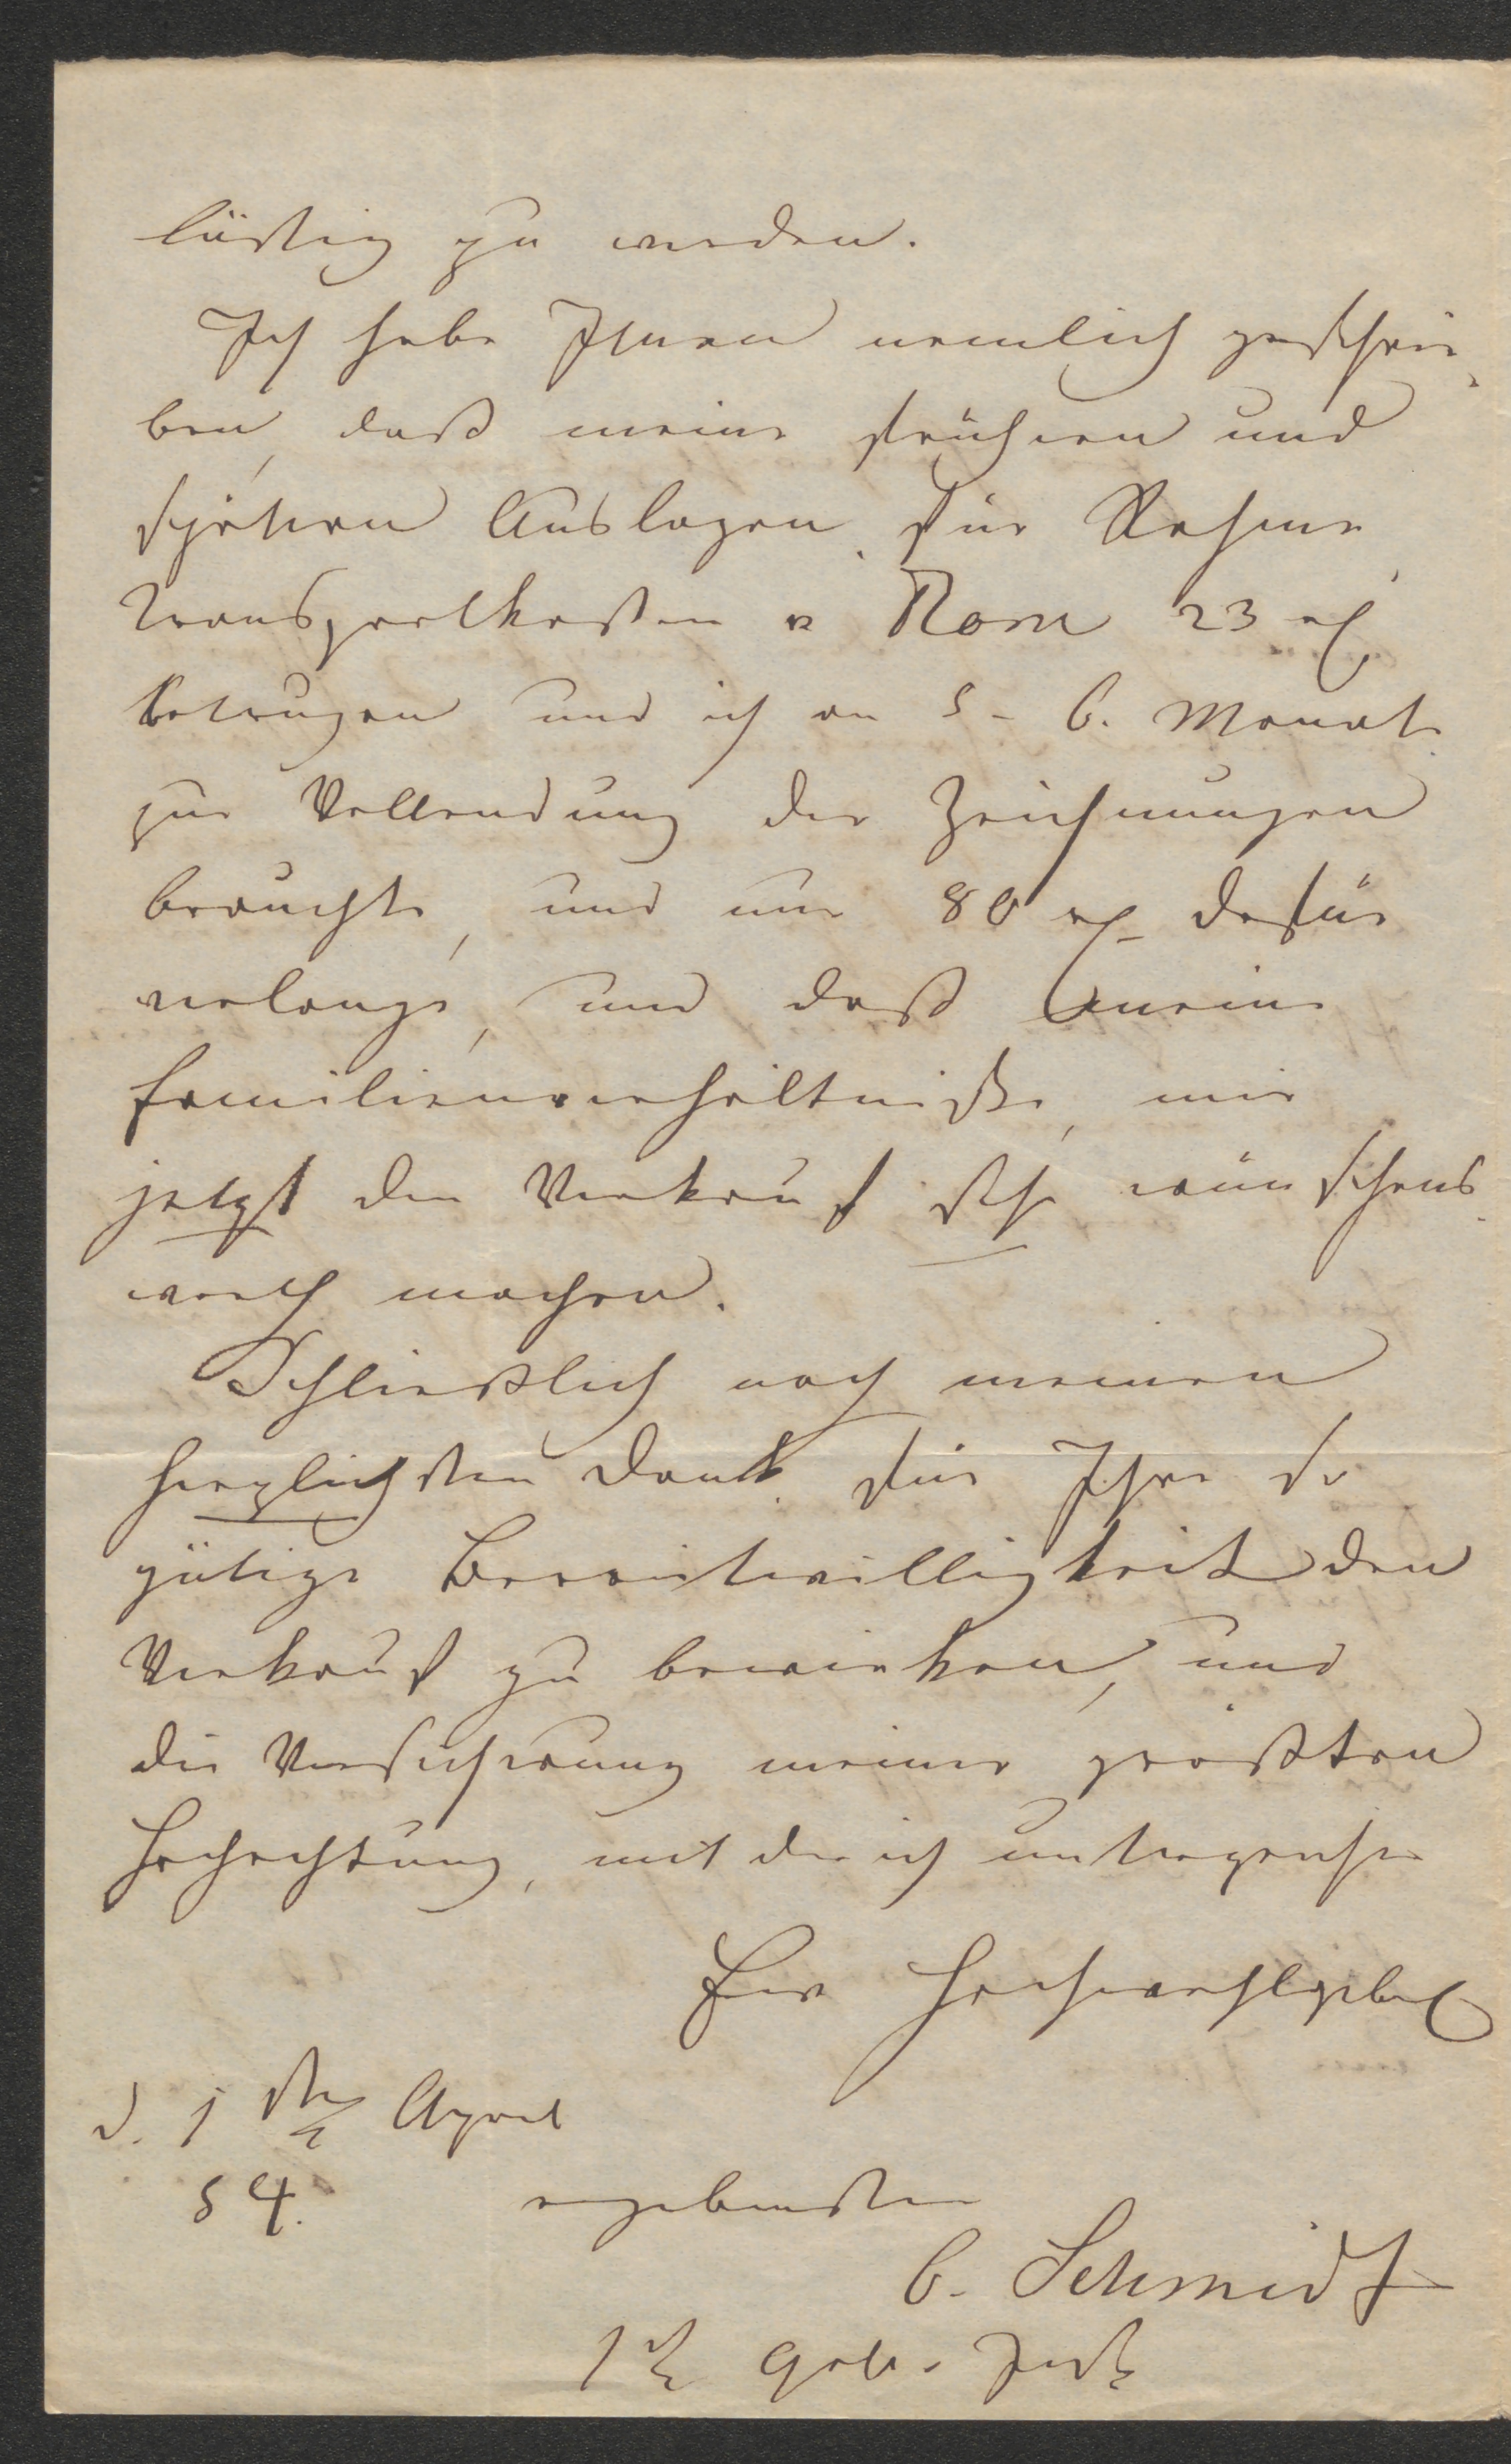 lästig zu werden.
Ich habe Ihnen nemlich geschrie-
ben, daß meine frühern und
spätern Auslagen für Rahme,
Transportkosten v Rom 23 rℓ
betrugen und ich an 5 - 6. Monat
zur Vollendung der Zeichnungen
brauchte, und nur 80 rℓ dafür
verlange, und daß meine
Familienverhältniße, mir
jetzt den Verkauf sehr wünschens
werth machen.
Schließlich noch meinen
herzlichsten Dank für Ihre so
gütige Bereitwilligkeit den
Verkauf zu bewirken, und
die Versicherung meiner größten
Hochachtung, mit der ich unterzeichne
Ew Hochwohlgeb
d. 1 ten April
54. ergebenster
C. Schmidt